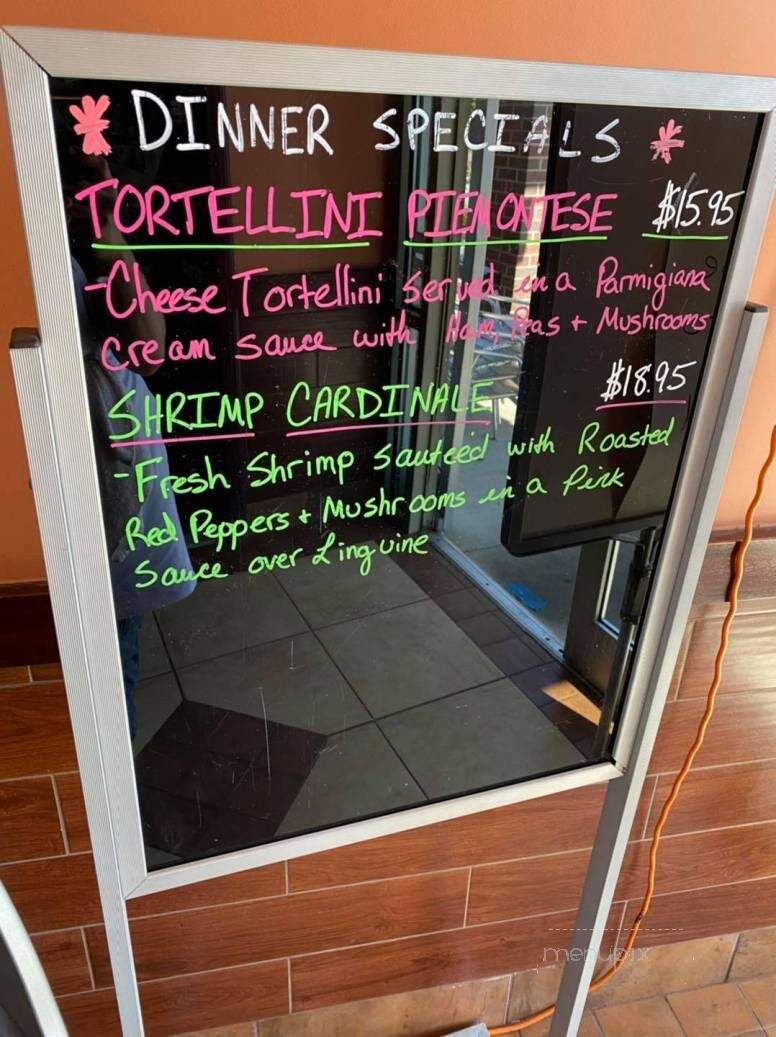 * DINNER SPECIALS *
TORTELLINI PIEMONTESE $15.95
-Cheese Tortellini Served in a Parmigiana
Cream sauce with Ham, Peas + Mushrooms
SHRIMP CARDINALE $18.95
-Fresh Shrimp sauteed with Roasted
Red Peppers + Mushrooms in a Pink
Sauce over Linguine
menupix